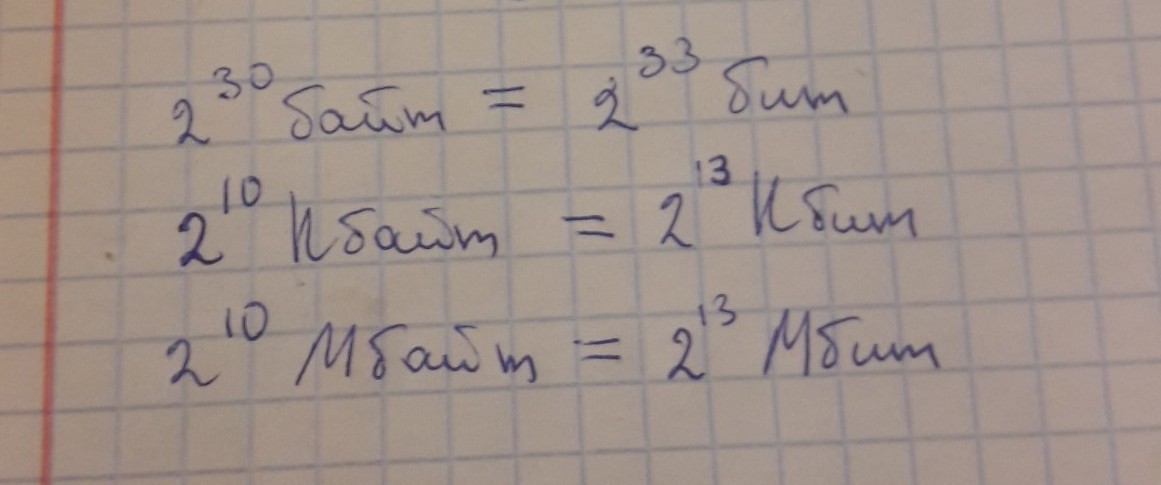 2³⁰ байт = 2³³ бит
2¹⁰ Кбайт = 2¹³ Кбит
2¹⁰ Мбайт = 2¹³ Мбит